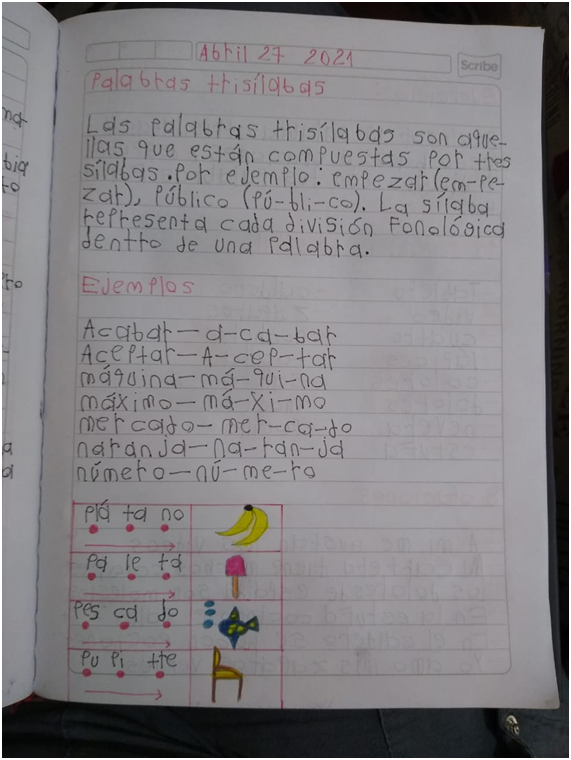 Abril 27 2021
Scribe
Palabras trisílabas
Las Palabras trisílabas son aque-
llas que están compuestas por tres
sílabas. Por ejemplo: empezar (em-pe-
zar), Público (Pú-bli-co). La sílaba
representa cada división Fonológica
dentro de una Palabra.
Ejemplos
Acabar—a-ca-bar
Aceptar—A-cep-tar
máquina—má-qui-na
máximo—má-xi-mo
mercado—mer-ca-do
naranja—na-ran-ja
número—nú-me-ro
Plá ta no
Pa le ta
Pes ca do
Pu pi tre